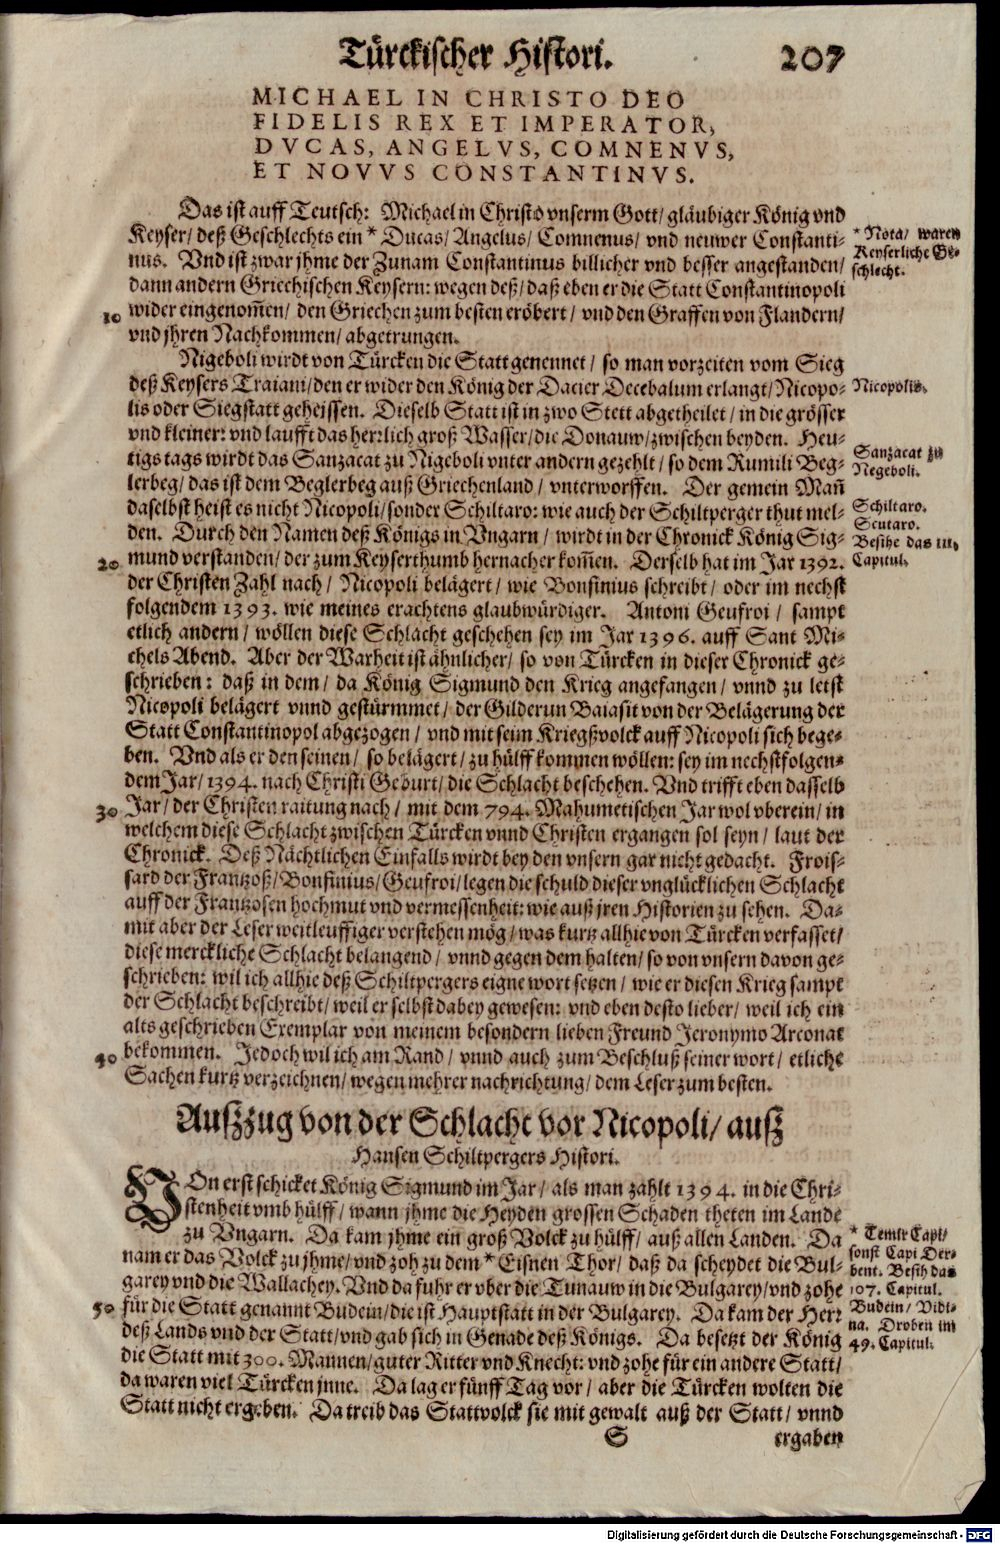 Türckischer Histori. 207
MICHAEL IN CHRISTO DEO
FIDELIS REX ET IMPERATOR,
DVCAS, ANGELVS, COMNENVS,
ET NOVVS CONSTANTINVS.
Das ist auff Teutsch: Michael in Christo vnserm Gott/ gläubiger König vnd
Keyser/ deß Geschlechts ein * Ducas/ Angelus/ Comnenus/ vnd neuwer Constanti-
* Nota/ waren
Keyserliche Ge-
schlecht.
nus. Vnd ist zwar jhme der Zunam Constantinus billicher vnd besser angestanden/
dann andern Griechischen Keysern: wegen deß/ daß eben er die Statt Constantinopoli
10 wider eingenom̃en/ den Griechen zum besten eröbert/ vnd den Graffen von Flandern/
vnd jhren Nachkommen/ abgetrungen.
Nigeboli wirdt von Türcken die Statt genennet/ so man vorzeiten vom Sieg
deß Keysers Traiani/ den er wider den König der Dacier Decebalum erlangt/ Nicopo-
Nicopolis.
lis oder Siegstatt geheissen. Dieselb Statt ist in zwo Stett abgetheilet/ in die grösser
vnd kleiner: vnd laufft das herrlich groß Wasser/ die Donauw/ zwischen beyden. Heu-
tigs tags wirdt das Sanzacat zu Nigeboli vnter andern gezehlt/ so dem Rumili Beg-
Sanzacat zu
Negeboli.
lerbeg/ das ist dem Beglerbeg auß Griechenland/ vnterworffen. Der gemein Mañ
daselbst heist es nicht Nicopoli/ sonder Schiltaro: wie auch der Schiltperger thut mel-
Schiltaro.
Scutaro.
den. Durch den Namen deß Königs in Vngarn/ wirdt in der Chronick König Sig-
Besihe das 111.
Capitul.
20 mund verstanden/ der zum Keyserthumb hernacher kom̃en. Derselb hat im Jar 1392.
der Christen Zahl nach/ Nicopoli belägert/ wie Bonfinius schreibt/ oder im nechst
folgendem 1393. wie meines erachtens glaubwürdiger. Antoni Geufroi/ sampt
etlich andern/ wöllen diese Schlacht geschehen sey im Jar 1396. auff Sant Mi-
chels Abend. Aber der Warheit ist ähnlicher/ so von Türcken in dieser Chronick ge-
schrieben: daß in dem/ da König Sigmund den Krieg angefangen/ vnnd zu letst
Nicopoli belägert vnnd gestürmmet/ der Gilderun Baiasit von der Belägerung der
Statt Constantinopol abgezogen/ vnd mit seim Kriegßvolck auff Nicopoli sich bege-
ben. Vnd als er den seinen/ so belägert/ zu hülff kommen wöllen: sey im nechstfolgen-
dem Jar/ 1394. nach Christi Geburt/ die Schlacht beschehen. Vnd trifft eben dasselb
30 Jar/ der Christen raitung nach/ mit dem 794. Mahumetischen Jar wol vberein/ in
welchem diese Schlacht zwischen Türcken vnnd Christen ergangen sol seyn/ laut der
Chronick. Deß Nächtlichen Einfalls wirdt bey den vnsern gar nicht gedacht. Frois-
sard der Frantzoß/ Bonfinius/ Geufroi/ legen die schuld dieser vnglücklichen Schlacht
auff der Frantzosen hochmut vnd vermessenheit: wie auß jren Historien zu sehen. Da-
mit aber der Leser weitleuffiger verstehen mög/ was kurtz allhie von Türcken verfasset/
diese merckliche Schlacht belangend/ vnnd gegen dem halten/ so von vnsern davon ge-
schrieben: wil ich allhie deß Schiltpergers eigne wort setzen/ wie er diesen Krieg sampt
der Schlacht beschreibt/ weil er selbst dabey gewesen: vnd eben desto lieber/ weil ich ein
alts geschrieben Exemplar von meinem besondern lieben Freund Jeronymo Arconat
40 bekommen. Jedoch wil ich am Rand/ vnnd auch zum Beschluß seiner wort/ etliche
Sachen kurtz verzeichnen/ wegen mehrer nachrichtung/ dem Leser zum besten.
Außzug von der Schlacht vor Nicopoli/ auß
Hansen Schiltpergers Histori.
VOn erst schicket König Sigmund im Jar/ als man zahlt 1394. in die Chri-
stenheit vmb hülff/ wann jhme die Heyden grossen Schaden theten im Lande
zu Vngarn. Da kam jhme ein groß Volck zu hülff/ auß allen Landen. Da
* Temir Capi/
sonst Capi Der-
bent. Besih das
107. Capitul.
nam er das Volck zu jhme/ vnd zoh zu dem * Eisnen Thor/ daß da scheydet die Bul-
garey vnd die Wallachey. Vnd da fuhr er vber die Tunauw in die Bulgarey/ vnd zohe
50 für die Statt genannt Budein/ die ist Hauptstatt in der Bulgarey. Da kam der Herr
Budein/ Vidi-
na. Droben im
49. Capitul.
deß Lands vnd der Statt/ vnd gab sich in Genade deß Königs. Da besetzt der König
die Statt mit 300. Mannen/ guter Ritter vnd Knecht: vnd zohe für ein andere Statt/
da waren viel Türcken jnne. Da lag er fünff Tag vor/ aber die Türcken wolten die
Statt nicht ergeben. Da treib das Stattvolck sie mit gewalt auß der Statt/ vnnd
S ergaben
Digitalisierung gefördert durch die Deutsche Forschungsgemeinschaft - DFG